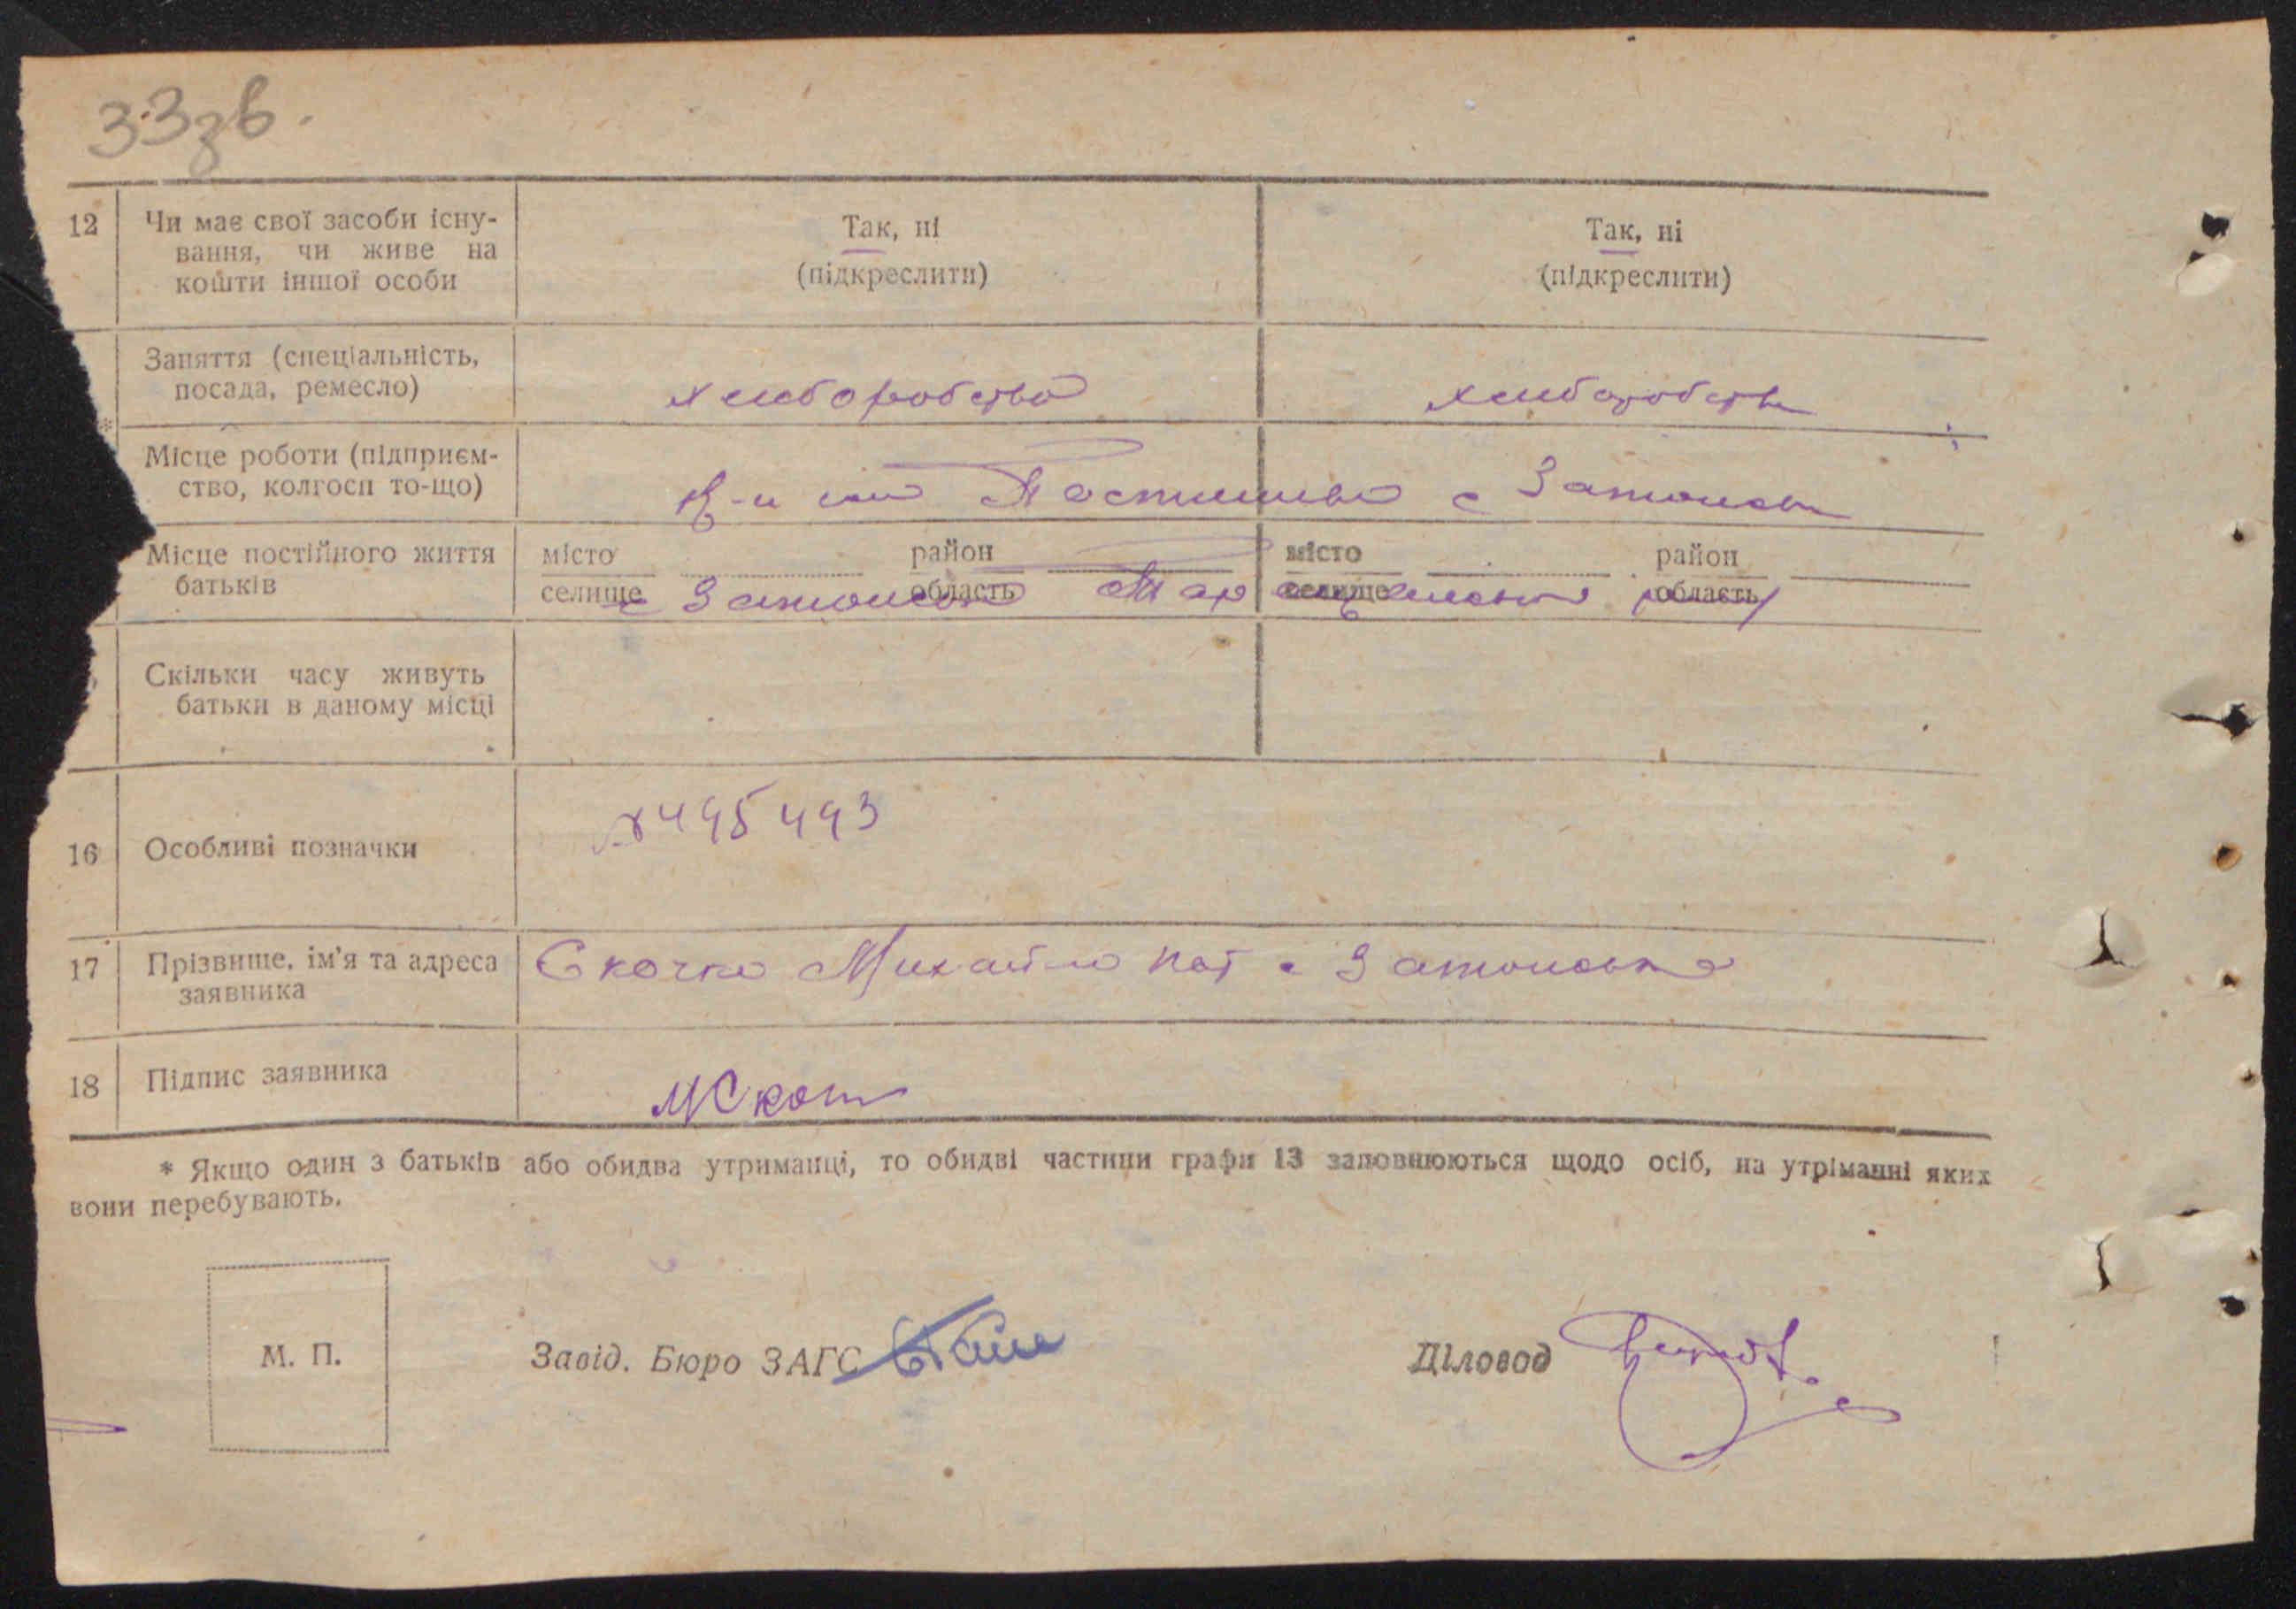 33зв.
12 Чи має свої засоби існу-
вання, чи живе на
кошти іншої особи
Так, ні
(підкреслити)
Так, ні
(підкреслити)
Заняття (спеціальність,
посада, ремесло)
хліборобство
хліборобство
*
Місце роботи (підприєм-
ство, колгосп то-що)
с Затонськ
Місце постійного життя
батьків
місто район
селище область
місто район
селище область
с Затонськ
Скільки часу живуть
батьки в даному місці
16 Особливі позначки
495493
17 Прізвище, ім'я та адреса
заявника
Скочко Михайло с Затонськ
18 Підпис заявника
МСкоч
* Якщо один з батьків або обидва утриманці, то обидві частини графи 13 заповнюються щодо осіб, на утріманні яких
вони перебувають.
М. П.
Завід. Бюро ЗАГС
Діловод